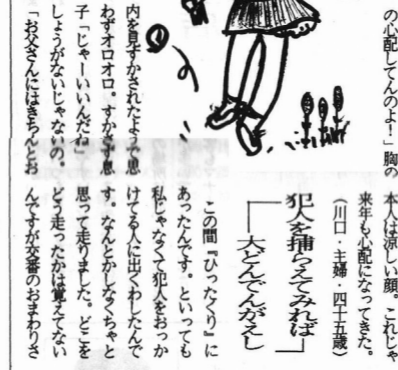 の心配してんのよ！」胸の
内を見すかされたようで思
わずオロオロ。すかさず息
子「じゃーいいんだね」
しょうがないじゃないの。
「お父さんにはきちんとお
本人は涼しい顔。これじゃ
来年も心配になってきた。
（川口・主婦・四十五歳）
犯人を捕らえてみれば
――大どんでんがえし
この間『ひったくり』に
あったんです。といっても
私じゃなくて犯人をおっか
けてる人に出くわしたんで
す。なんとかしなくちゃと
思って走りました。どこを
どう走ったかは覚えてない
んですが交番のおまわりさ